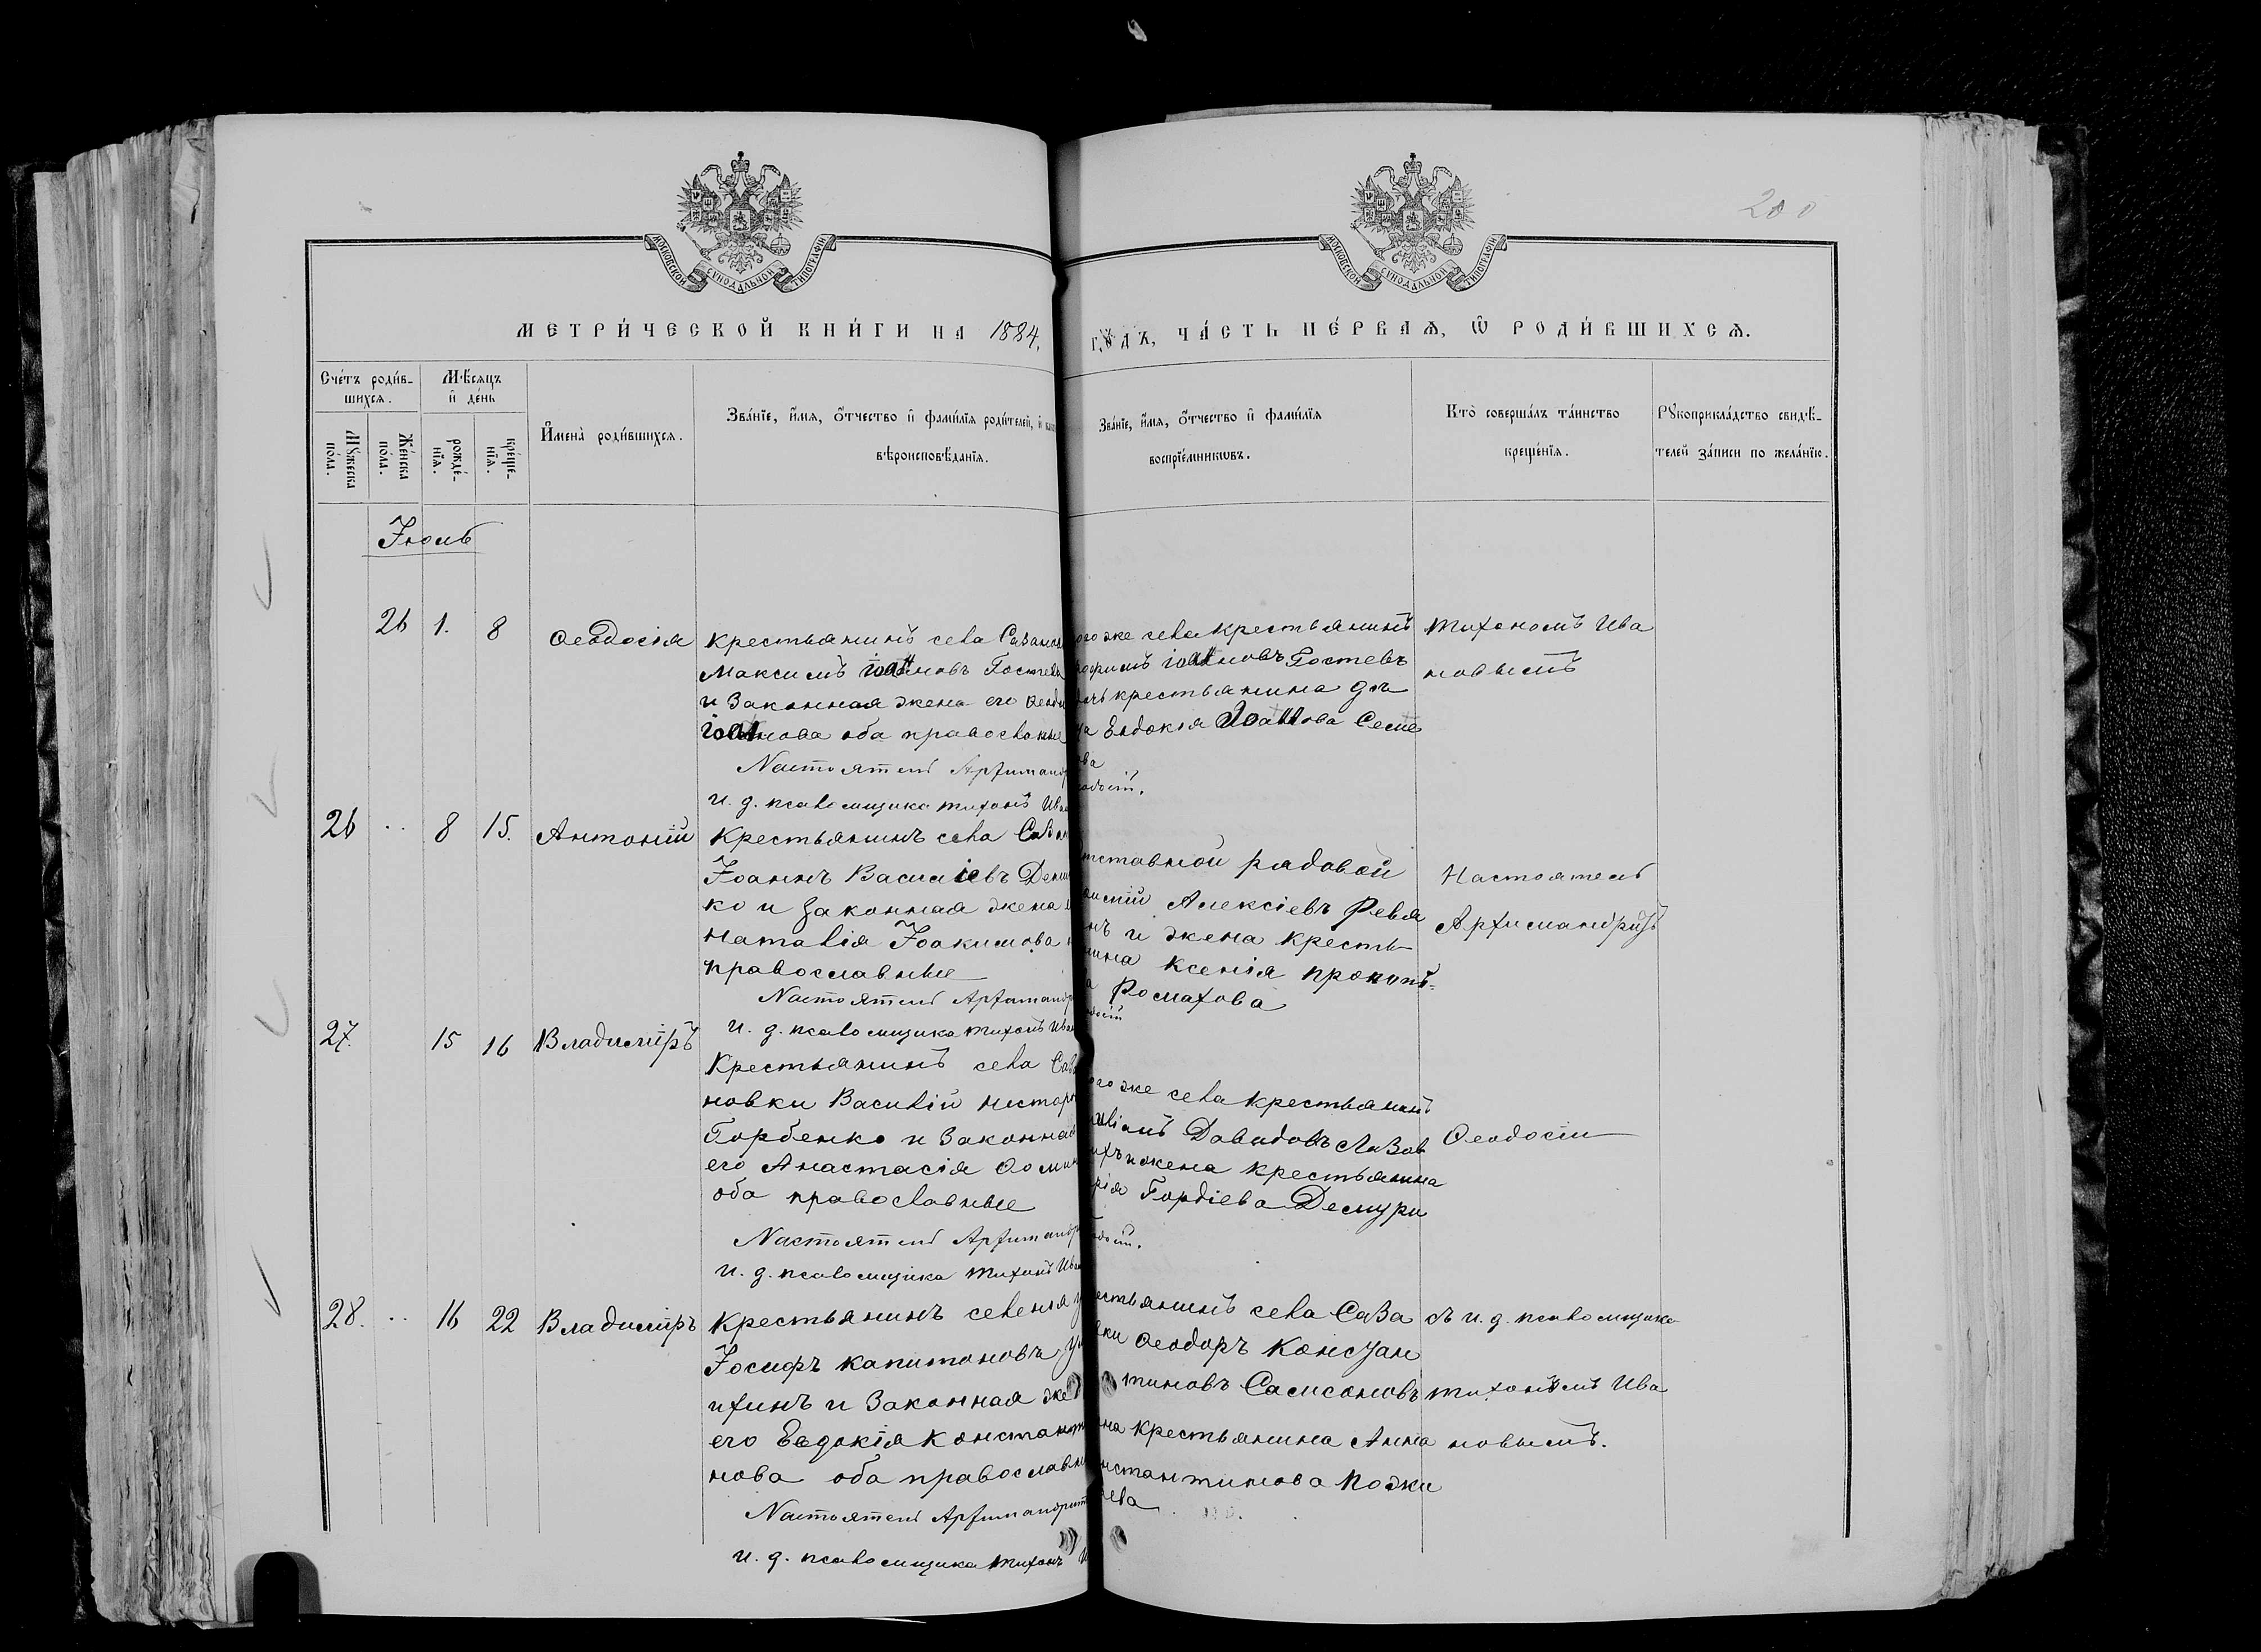 200
МОСКОВСКОЙ СѴНОДАЛЬНОЙ ТИПОГРАФІИ
МОСКОВСКОЙ СѴНОДАЛЬНОЙ ТИПОГРАФІИ
МЕТРИ́ЧЕСКОЙ КНИ́ГИ НА 1884,
ГО́ДЪ, ЧА́СТЬ ПЕ́РВАѦ, Ѡ҆ РОДИ́ВШИХСѦ.
Сче́тъ роди́в-
шихсѧ.
Мꙋ́жеска
по́ла.
Же́нска
по́ла.
Мѣ́сѧцъ
и҆ де́нь
рожде́-
нїѧ.
креще́-
нїѧ.
И҆мена̀ роди́вшихсѧ.
Зва́нїе, и҆́мѧ, ѻ҆́тчество и҆ фами́лїѧ роди́телей, и҆
вѣроисповѣ́данїѧ.
Зва́нїе, и҆́мѧ, ѻ҆́тчество и҆ фами́лїѧ
воспрїе́мникѡвъ.
Кто̀ соверша́лъ та́инство
креще́нїѧ.
Рꙋкоприкла́дство свидѣ́-
телей за́писи по жела́нїю.
Іюль
26 1. 8 Ѳеодосія
крестьянинъ села Саванов
Максимъ іоанновъ Гостевъ
и законная жена его
іоаннова оба православные
Настоятель Архимандр
и. д. псаломщика Тихонъ Ива
ого же села крестьянинъ
рофимъ іоанновъ Гостевъ
дочь крестьянина
Евдокія Іоаннова Семе
ова
еодосій.
Тихономъ Ива
новымъ
26 .. 8 15. Антоній
Крестьянинъ села Саван
Іоаннъ Василіевъ
ко и законная жена
Наталія Іоакимова
православные
Настоятель Архимандр
и. д. псаломщика Тихонъ Ива
тставной рядовой
Алексіевъ Ревя
нъ и жена кресть
нина Ксенія Прокопь
Ромахова
Настоятель
Архимандритъ
27. 15 16 Владиміръ
Крестьянинъ села Сава
новки Василій Несторо
Горбенко и законная
его Анастасія Ѳомин
оба православные
Настоятель Архимандр
и. д. псаломщика Тихонъ Ива
ого же села крестьянинъ
Давидовъ Лазов
ихъ и жена крестьянина
рія Гордіева Демури
одосій.
Ѳеодосій
28. .. 16 22 Владиміръ
Крестьянинъ селенія
Іосифъ Капитоновъ
ихинъ и законная же
его Евдокія Констант
нова оба православн
Настоятель Архимандрит
и. д. псаломщика Тихонъ И
естьянинъ села Сава
вки Ѳеодоръ Констан
тиновъ Самсоновъ
на крестьянина Анна
нстантинова Пожи
ева
съ и. д. псаломщика
Тихономъ Ива
новымъ.